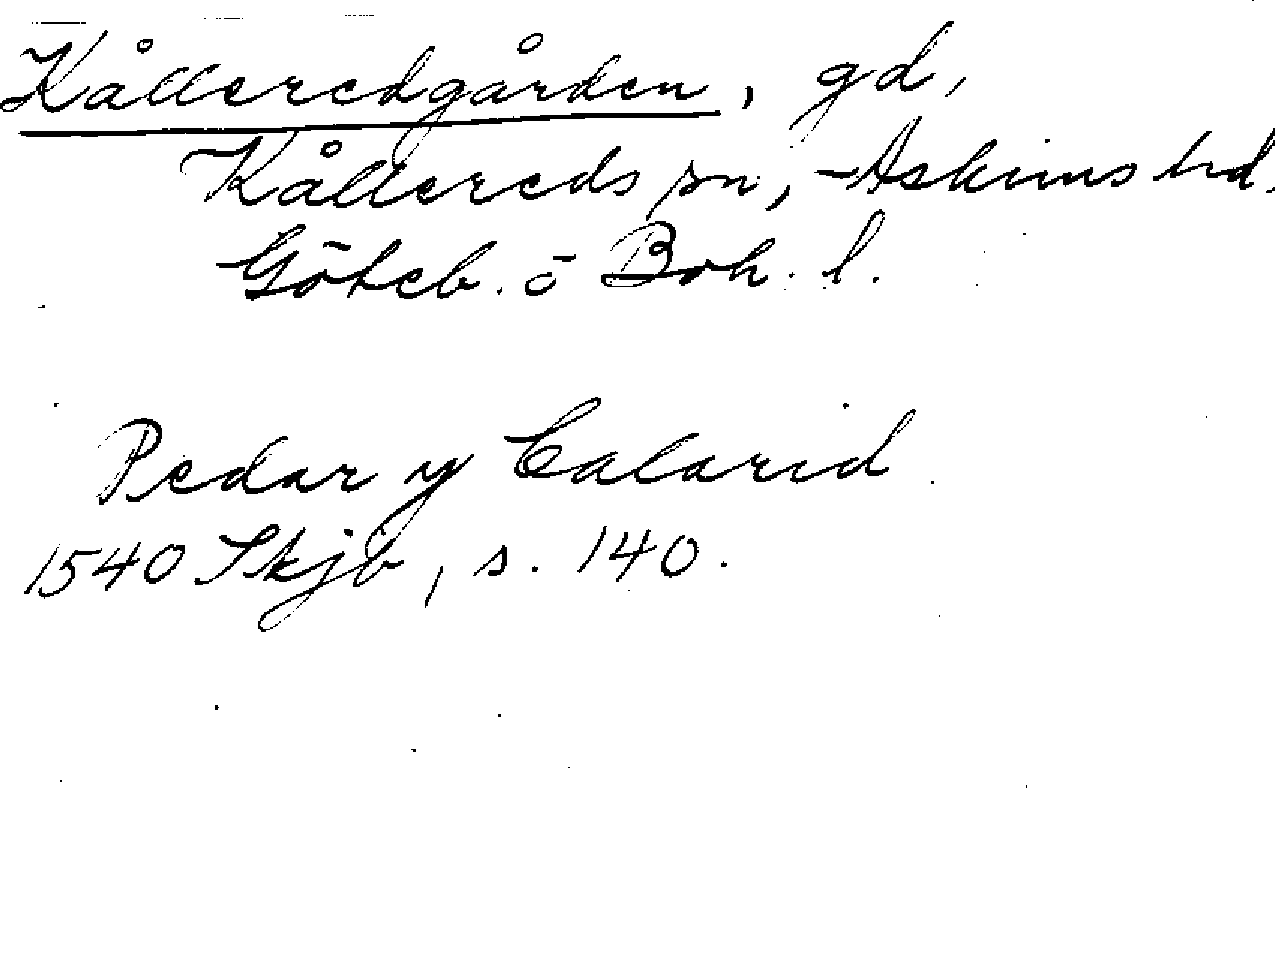 Kålleredgården, gd,
Kållereds sn, Askims hd.
Göteb. o Boh. l.
Pedar y Calarid
1540 Skjb, s. 140.